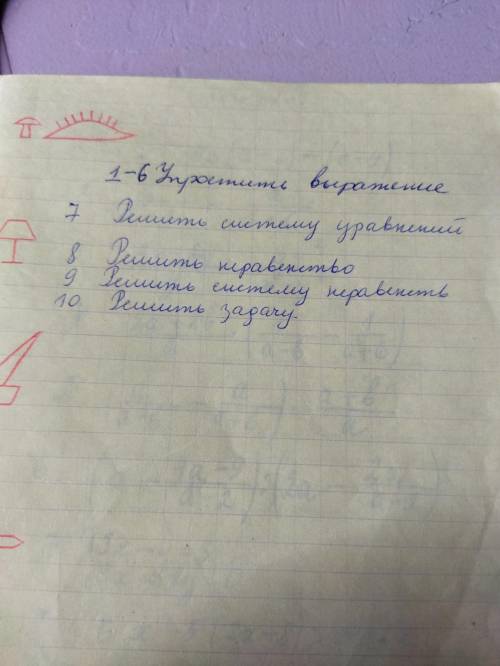 1-6 Упростить выражение
7 Решить систему уравнений
8 Решить неравенство
9 Решить систему неравенств
10 Решить задачу.